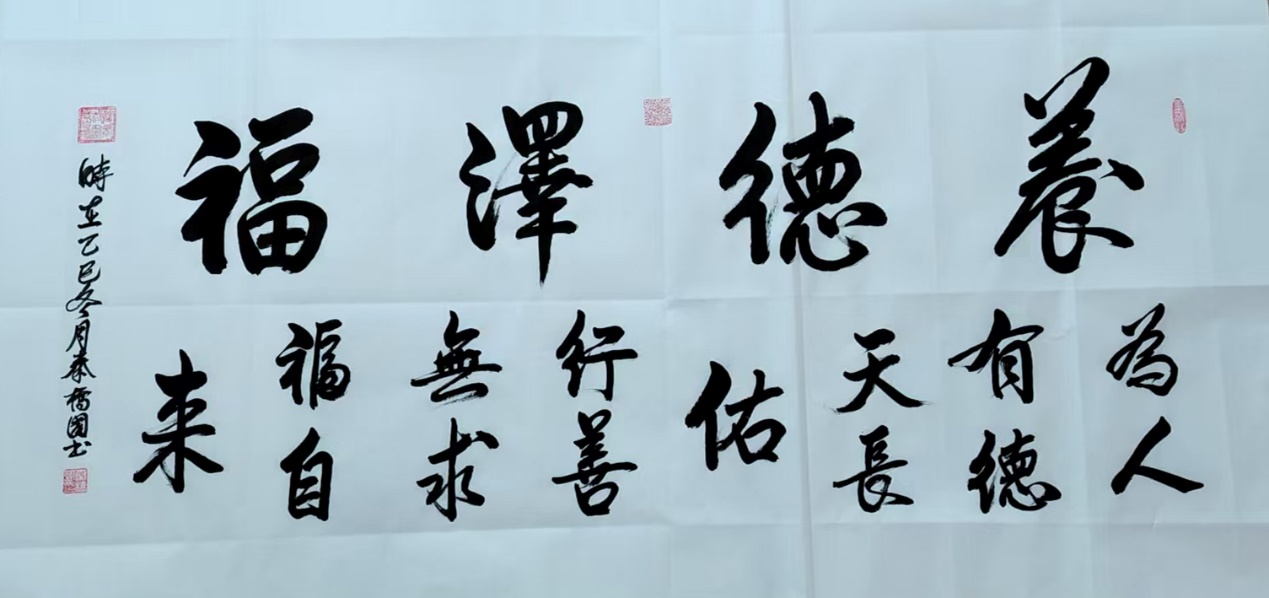 養德澤福
為人有德天長佑
行善無求福自来
時在乙巳冬月秦橋國书